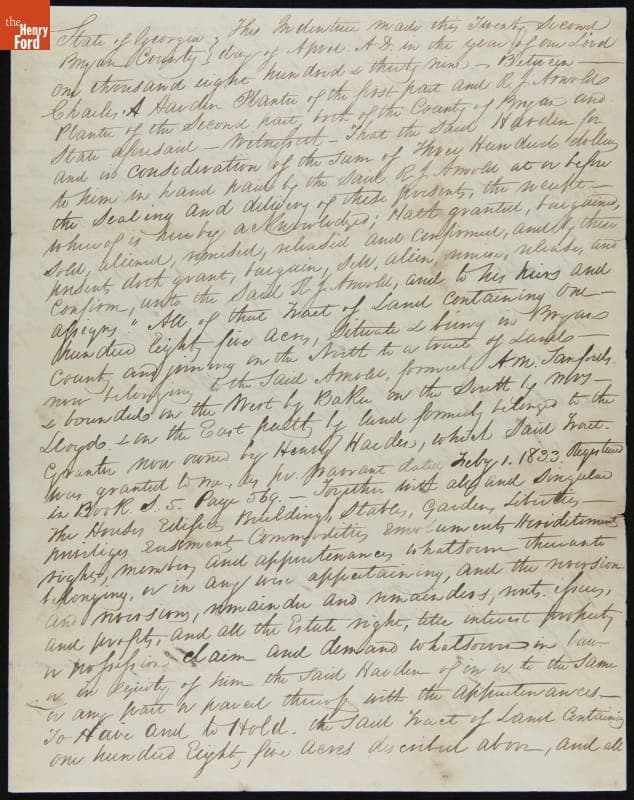 the
Henry
Ford
State of Georgia } This Indenture made this Twenty Second
Bryan County } day of April A.D. in the year of our Lord
one thousand eight hundred & thirty nine – Between –
Charles A Harden Planter of the first part and R. J. Arnold
Planter of the Second part, both of the County of Bryan and
State aforesaid – Witnesseth – That the said Harden for
and in consideration of the Sum of Three Hundred dollars
to him in hand paid by the said R J Arnold at or before
the Sealing and delivery of these presents, the receipt –
whereof is hereby acknowledged; Hath granted, bargained,
Sold, aliened, remised, released and confirmed, and by these
presents doth grant, bargain, Sell, alien, remise, release, and
Confirm, unto the said R J Arnold, and to his heirs and
assigns " All of that Tract of Land containing One
Hundred Eighty five Acres, Situate & being in Bryan
County and joining on the North to a tract of Land –
now belonging to the said Arnold, formerly A M. Sanfords
& bounded on the West by Baker on the South by Mrs –
Lloyd & on the East partly by land formerly belonged to the
Grantor now owned by Henry Harden, which Said Tract
was granted to me, as pr. Warrant dated Feby 1. 1833 Registered
in Book S. 5. Page 569. – Together with all and Singular
the Houses Edifices Buildings, Stables, Gardens, Liberties –
priviliges Easment Commodities Emoluments Hereditaments
rights, members and appurtenances whatsoever thereunto
belonging, or in any wise appertaining, and the reversion
and reversions, remainder and remainders, rents, issues,
and profits, and all the Estate right, title interest property
or possession claim and demand whatsoever in law
or in equity of him the Said Harden of in or to the same
or any part or parcel thereof with the appurtenances –
To Have and to Hold. the Said Tract of Land Containing
one hundred Eighty five acres discribed above, and all